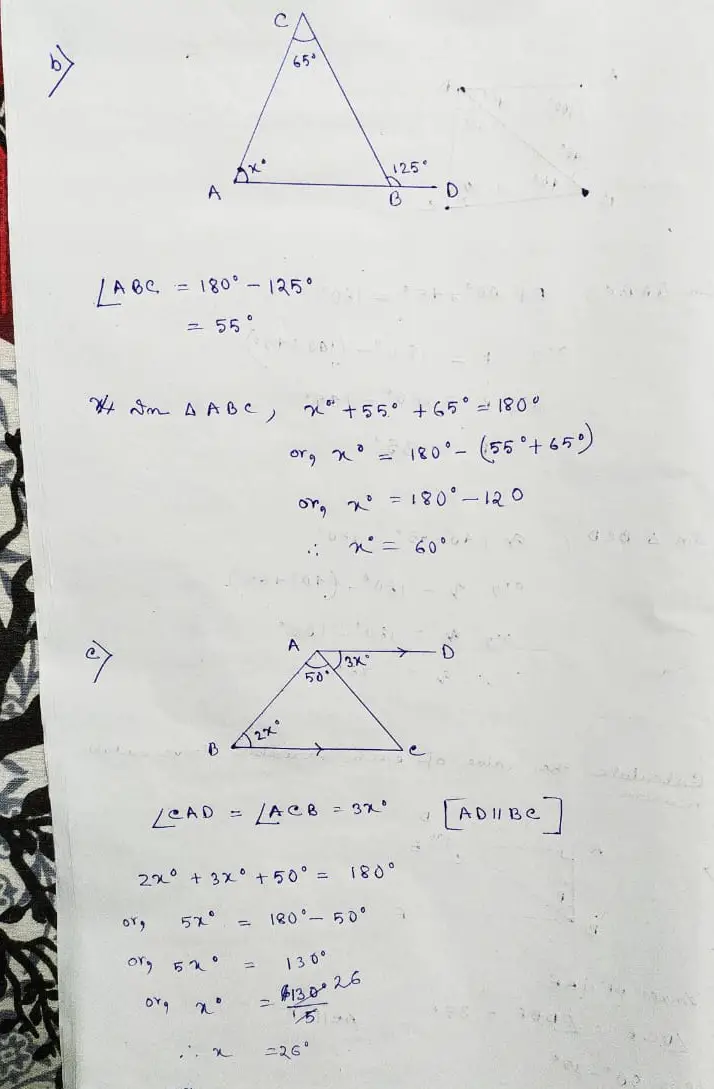 b)
C
65°
x°
125°
A
B
D
∠ABC = 180° - 125°
= 55°
In △ ABC, x° + 55° + 65° = 180°
or, x° = 180° - (55° + 65°)
or, x° = 180° - 120
∴ x° = 60°
c)
A
D
50°
3x°
2x°
B
C
∠CAD = ∠ACB = 3x° [AD || BC]
2x° + 3x° + 50° = 180°
or, 5x° = 180° - 50°
or, 5x° = 130°
or, x° = 130° 26
15
∴ x = 26°